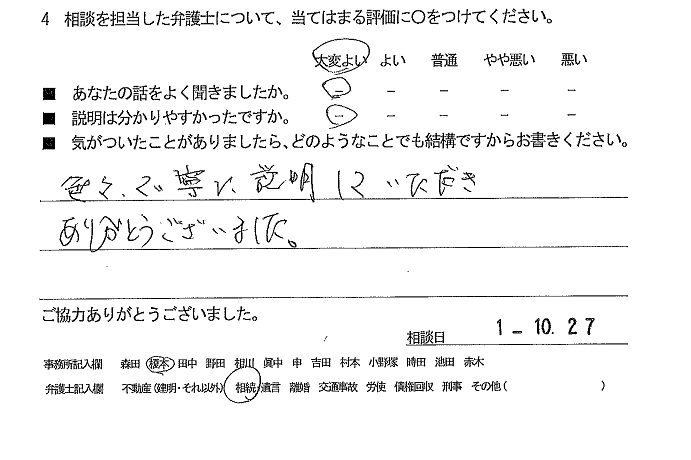 4 相談を担当した弁護士について、当てはまる評価に○をつけてください。
大変よい よい 普通 やや悪い 悪い
■ あなたの話をよく聞きましたか。 － － － － －
■ 説明は分かりやすかったですか。 － － － － －
■ 気がついたことがありましたら、どのようなことでも結構ですからお書きください。
色々、ご丁寧に説明していただき
ありがとうございました。
ご協力ありがとうございました。
相談日 1－10.27
事務所記入欄 森田 榎本 田中 野田 相川 眞中 申 吉田 村本 小野塚 時田 池田 赤木
弁護士記入欄 不動産（建明・それ以外） 相続 遺言 離婚 交通事故 労使 債権回収 刑事 その他（ ）